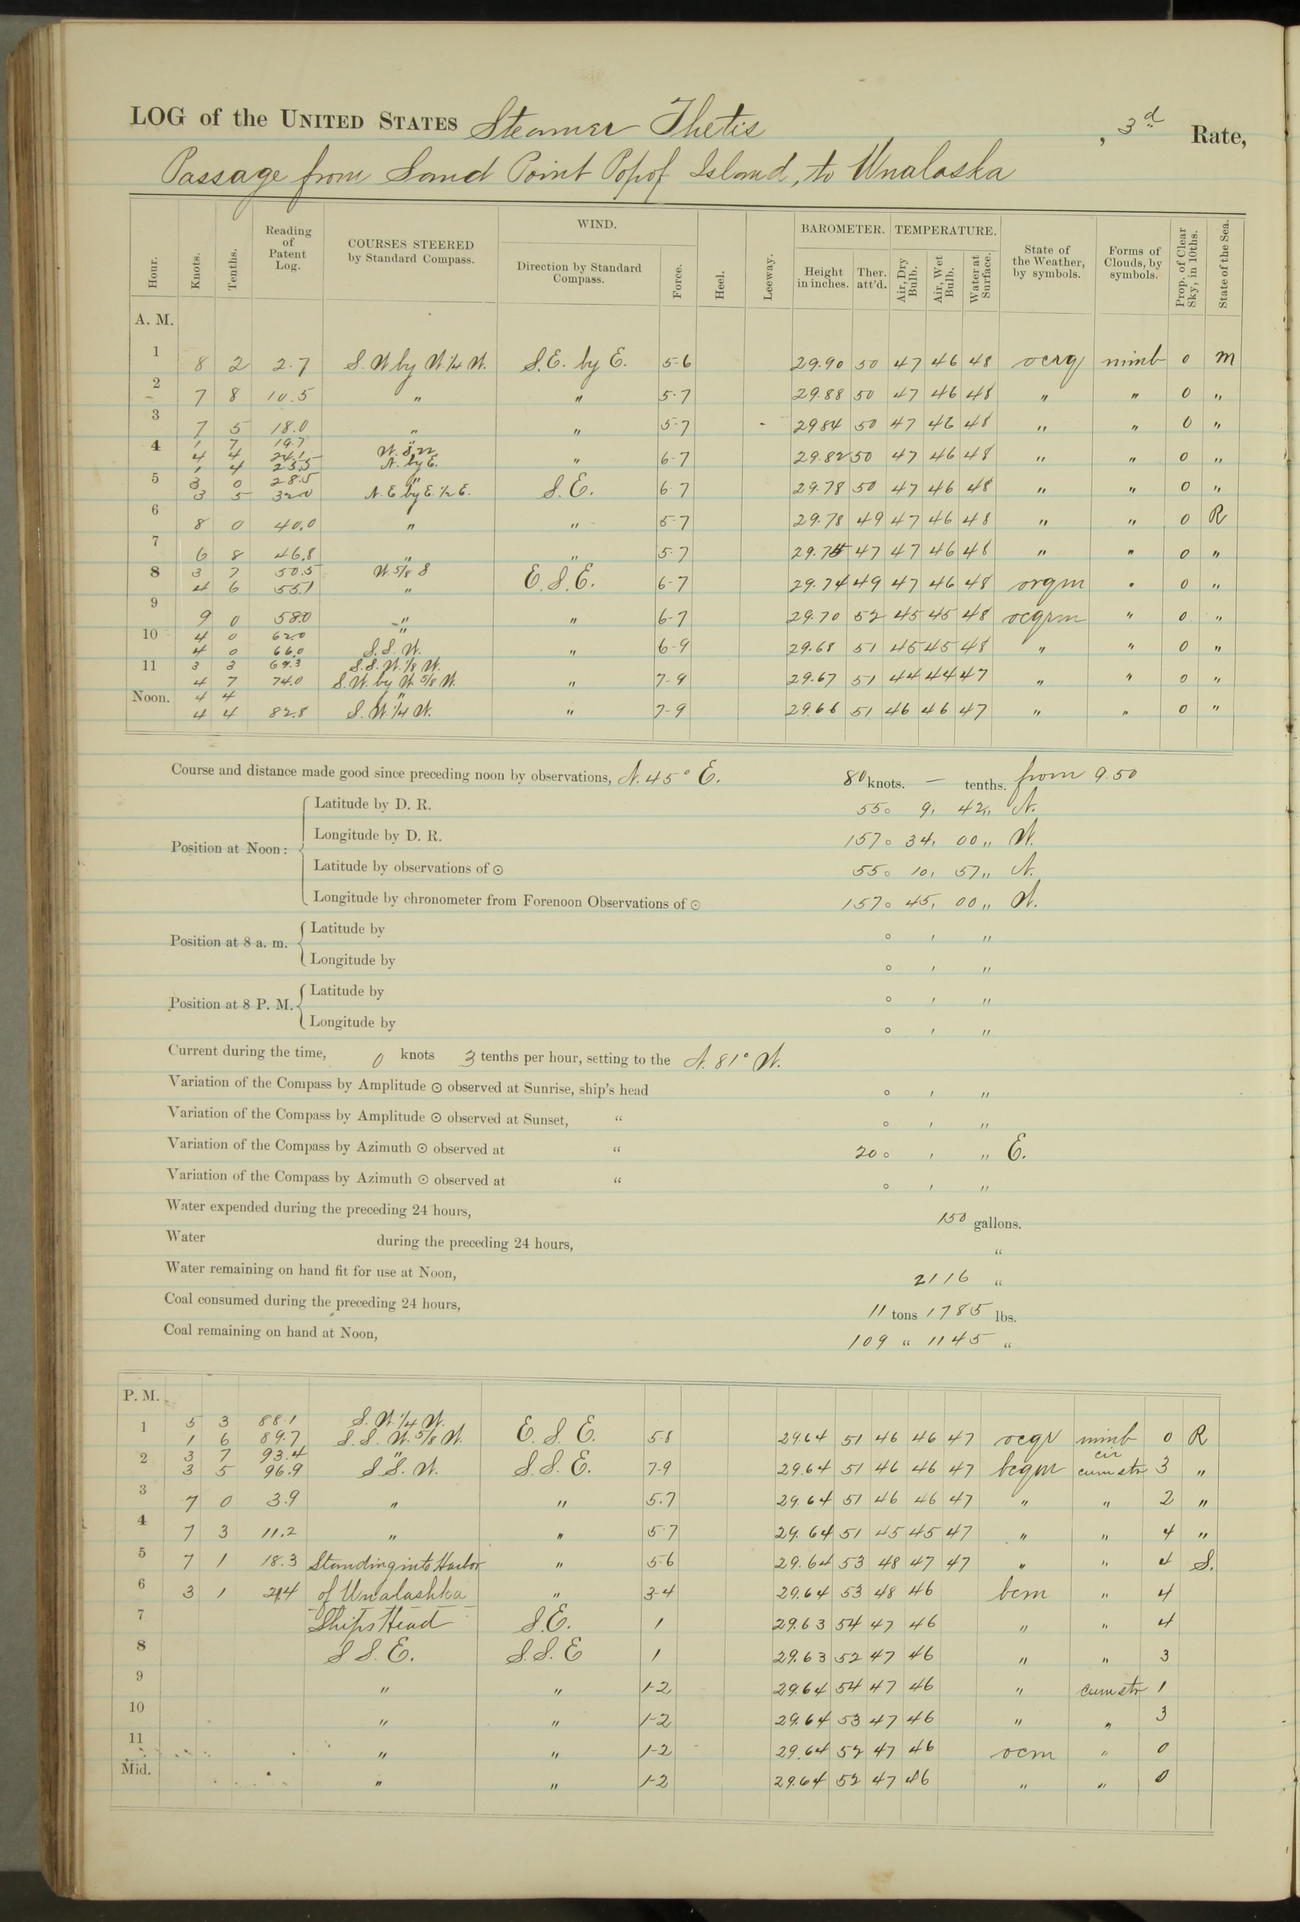 LOG of the UNITED STATES Steamer Thetis , 3d Rate,
Passage from Sand Point Popof Island, to Unalaska
Hour. Knots. Tenths. Reading of Patent Log. COURSES STEERED by Standard Compass. WIND. Direction by Standard Compass. Force. Heel. Leeway. BAROMETER. Height in inches. Ther. att'd. TEMPERATURE. Air, Dry Bulb. Air, Wet Bulb. Water at Surface. State of the Weather, by symbols. Forms of Clouds, by symbols. Prop. of Clear Sky, in 10ths. State of the Sea.
A. M.
1 8 2 2.7 S. W by W 1/4 W. S.E. by E. 5-6 29.90 50 47 46 48 ocrq nimb 0 m
2 7 8 10.5 " " 5-7 29.88 50 47 46 48 " " 0 "
3 7 5 18.0 " " 5-7 29 84 50 47 46 48 " " 0 "
1 7 19.7 "
4 4 4 24.1 " 6-7 29.82 50 47 46 48 " " 0 "
1 4 25.5 N. by E.
5 3 0 28.5 "
3 5 32.0 N. E by E. 1/2 E. S.E. 6-7 29.78 50 47 46 48 " " 0 "
6 8 0 40.0 " " 5-7 29.78 49 47 46 48 " " 0 R
7 6 8 46.8 " " 5-7 47 47 46 48 " " 0 "
8 3 7 50.5 W. 5/8 S
4 6 55.1 " E. S.E. 6-7 29.74 49 47 46 48 orqm " 0 "
9 9 0 58.0 " " 6-7 29.70 52 45 45 48 ocqrm " 0 "
10 4 0 62.0 "
4 0 66.0 S. S. W. " 6-9 29.68 51 45 45 48 " " 0 "
11 3 3 69.3 S.S. W. 1/8 W.
4 7 74.0 S. W. by W 5/8 W. " 7-9 29.67 51 44 44 47 " " 0 "
Noon. 4 4 "
4 4 82.8 S. W 1/4 W. " 7-9 29.66 51 46 46 47 " " 0 "
Course and distance made good since preceding noon by observations, N. 45° E. 80 knots. — tenths. from 9.50
Position at Noon: Latitude by D. R. 55° 9' 42" N.
Longitude by D. R. 157° 34' 00" W.
Latitude by observations of ☉ 55° 10' 57" N.
Longitude by chronometer from Forenoon Observations of ☉ 157° 45' 00" W.
Position at 8 a. m. Latitude by ° ' "
Longitude by ° ' "
Position at 8 P. M. Latitude by ° ' "
Longitude by ° ' "
Current during the time, 0 knots 3 tenths per hour, setting to the N. 81° W.
Variation of the Compass by Amplitude ☉ observed at Sunrise, ship's head ° ' "
Variation of the Compass by Amplitude ☉ observed at Sunset, " ° ' "
Variation of the Compass by Azimuth ☉ observed at " 20° ' " E.
Variation of the Compass by Azimuth ☉ observed at " ° ' "
Water expended during the preceding 24 hours, 150 gallons.
Water during the preceding 24 hours, "
Water remaining on hand fit for use at Noon, 2116 "
Coal consumed during the preceding 24 hours, 11 tons 1785 lbs.
Coal remaining on hand at Noon, 109 " 1145 "
P. M.
5 3 88.1 S. W. 1/4 W.
1 1 6 89.7 S. S. W. 5/8 W. E. S E. 5-8 29.64 51 46 46 47 nimb 0 R
2 3 7 93.4 " cir
3 5 96.9 S S. W. S. S E. 7-9 29.64 51 46 46 47 bcqm cum str 3 "
3 7 0 3.9 " " 5.7 29.64 51 46 46 47 " " 2 "
4 7 3 11.2 " " 5-7 29.64 51 45 45 47 " " 4 "
5 7 1 18.3 Standing into Harbor " 5-6 29.64 53 48 47 47 " " 4 S.
6 3 1 21.4 of Unalashka " 3-4 29.64 53 48 46 bcm " 4
7 Ships Head S.E. 1 29.63 54 47 46 " " 4
8 S S. E. S. S. E 1 29.63 52 47 46 " " 3
9 " " 1-2 29.64 54 47 46 " cum str 1
10 " " 1-2 29.64 53 47 46 " " 3
11 " " 1-2 29.64 52 47 46 ocm " 0
Mid. " " 1-2 29.64 52 47 46 " " 0